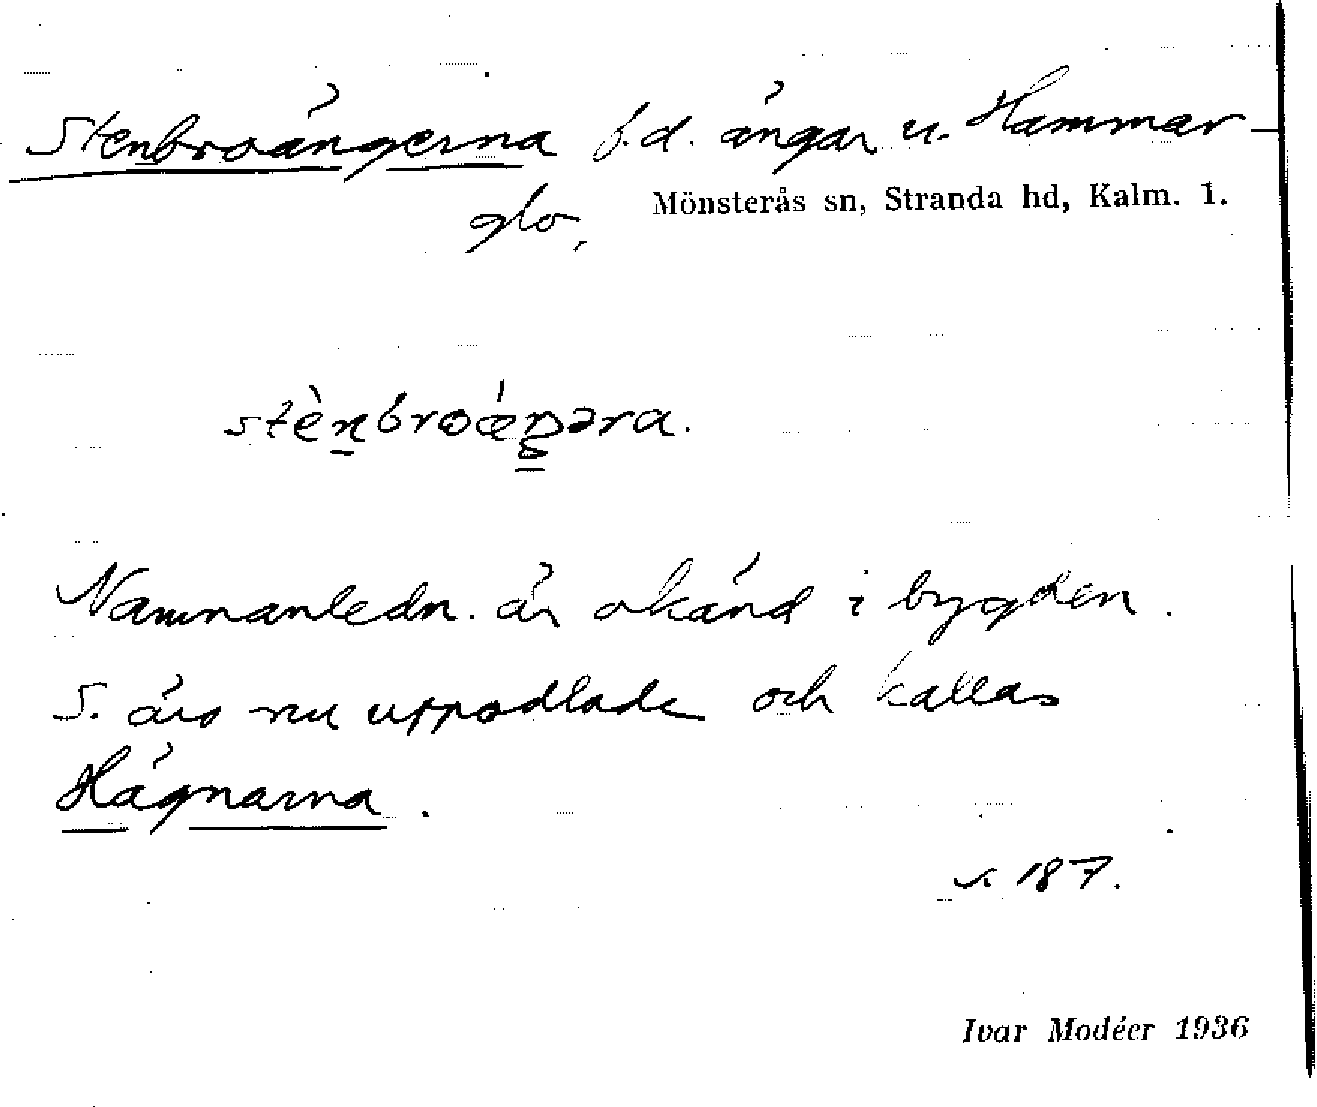 Stenbroängerna f.d. ängar u. Hammar-
glo,
Mönsterås sn, Stranda hd, Kalm. l.
stènbroæŋəra.
Namnanledn. är okänd i bygden.
S. äro nu uppodlade och kallas
Hägnarna.
187.
Ivar Modéer 1936